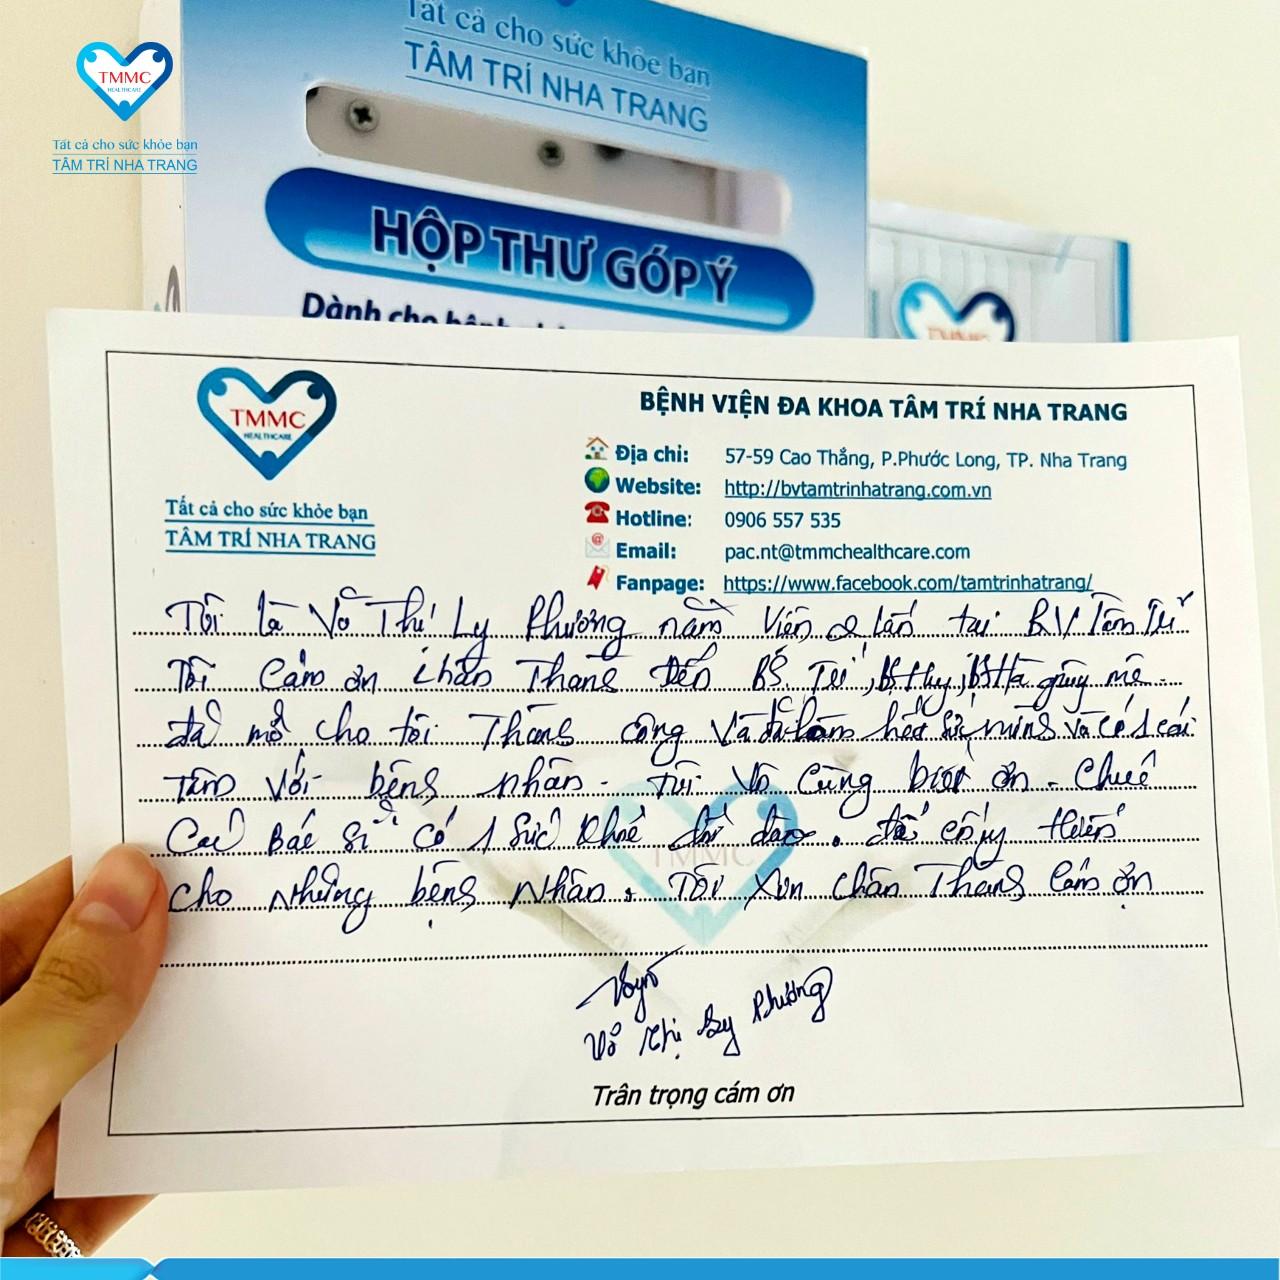 TMMC
HEALTHCARE
Tất cả cho sức khỏe bạn
TÂM TRÍ NHA TRANG
Tất cả cho sức khỏe bạn
TÂM TRÍ NHA TRANG
HỘP THƯ GÓP Ý
Dành cho bệnh
TMMC
TMMC
HEALTHCARE
Tất cả cho sức khỏe bạn
TÂM TRÍ NHA TRANG
BỆNH VIỆN ĐA KHOA TÂM TRÍ NHA TRANG
Địa chỉ: 57-59 Cao Thắng, P.Phước Long, TP. Nha Trang
Website: http://bvtamtrinhatrang.com.vn
Hotline: 0906 557 535
Email: pac.nt@tmmchealthcare.com
Fanpage: https://www.facebook.com/tamtrinhatrang/
Tôi là Võ Thị Ly Phương nằm viện 2 lần tại BV Tâm Trí
Tôi cảm ơn chân Thàng đến BS. Trí, BS Huy, BS Hà gây mê
đã mổ cho tôi Thàng công và đã làm hết sức mình và có 1 cái
Tâm với bệng nhân. Tôi vô cùng biết ơn. Chúc
Các Bác sĩ có 1 sức khỏe dồi dào. để cống hiến
cho những bệng nhân. Tôi xin chân Thàng cảm ơn
TMMC
Võ Thị Ly Phương
Trân trọng cám ơn